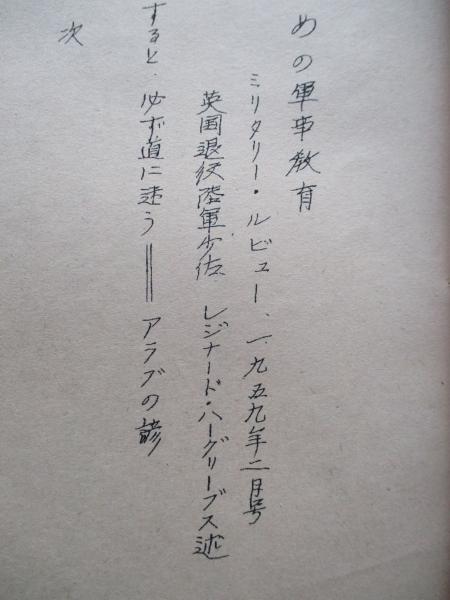 めの軍事教育
ミリタリー・ルビュー、一九五九年二月号
英国退役陸軍少佐 レジナード・ハーグリーブス述
すると、必ず道に迷う══アラブの諺
次